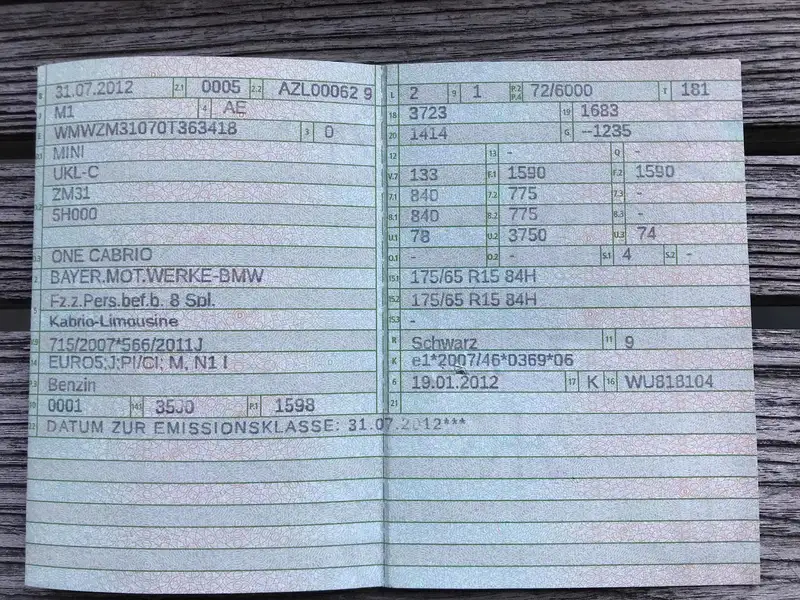 31.07.2012 2.1 0005 2.2 AZL00062 9
M1 4 AE
WMWZM31070T363418 3 0
MINI
UKL-C
ZM31
5H000
ONE CABRIO
BAYER.MOT.WERKE-BMW
Fz.z.Pers.bef.b. 8 Spl.
Kabrio-Limousine
715/2007*566/2011J
14 EURO5;J;PI/CI; M, N1 I
Benzin
0001 14.1 3500 P.1 1598
22 DATUM ZUR EMISSIONSKLASSE: 31.07.2012***
L 2 9 1 P.2 P.4 72/6000 T 181
18 3723 19 1683
20 1414 G --1235
12 13 - Q -
V.7 133 F.1 1590 F.2 1590
7.1 840 7.2 775 7.3 -
8.1 840 8.2 775 8.3 -
U.1 78 U.2 3750 U.3 74
O.1 - O.2 - S.1 4 S.2 -
15.1 175/65 R15 84H
15.2 175/65 R15 84H
15.3 -
R Schwarz 11 9
K e1*2007/46*0369*06
6 19.01.2012 17 K 16 WU818104
21